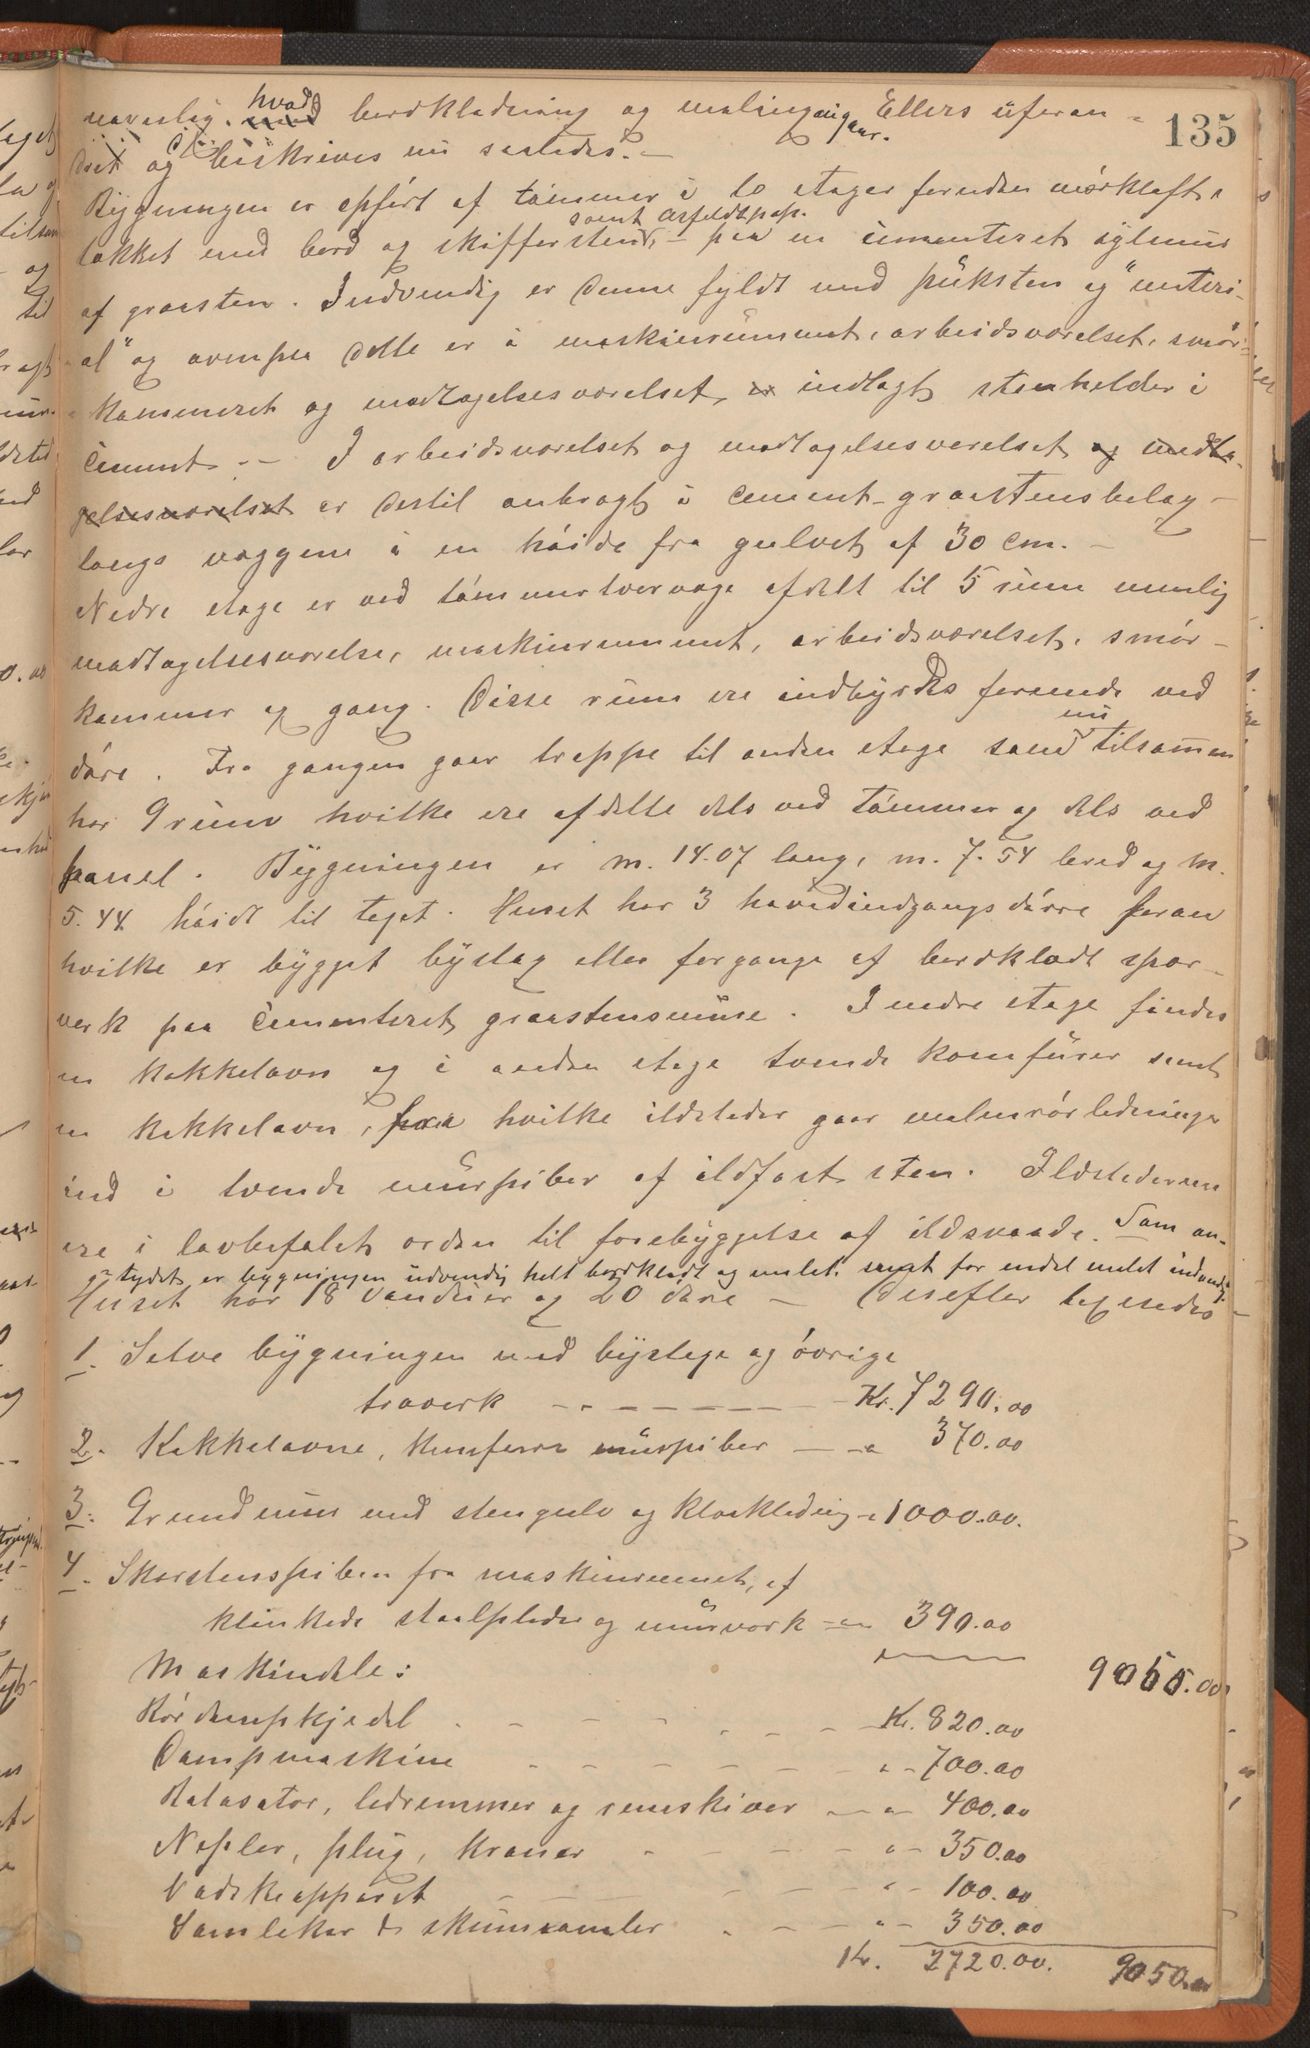 135
navnlig hvad bordklædning og maling angaar. Ellers uforan-
dret og beskrives nu saaledes. -
Bygningen er opført af tømmer i to etager foruden mørkloft,
tækket med bord og skiffersten samt asfeldtpap. - paa en cementeret sylmur
af graasten. Indvendig er denne fyldt med puksten og "materi-
al" og ovenpaa dette er i maskinrummet, arbeidsværelset, smør-
kammeret og modtagelsesværelset er indlagt stenheller i
cement. - I arbeidsværelset og modtagelsesværelset og modta-
gelsesværelset er dertil anbragt i cement graastensbelæg
langs væggene i en høide fra gulvet af 30 cm. -
Nedre etage er ved tømmertvervæge afdelt til 5 rum nemlig
modtagelsesværelse, maskinrummet, arbeidsværelset, smør-
kammer og gang. Disse rum ere indbyrdes forenede ved
døre. Fra gangen gaar trappe til anden etage som nu tilsammen
har 9 rum hvilke ere afdelte dels ved tømmer og dels ved
panel. Bygningen er m. 14.07 lang, m. 7.54 bred og m.
5.44 høidt til taget. Huset har 3 hovedindgangsdørre foran
hvilke er bygget byslag eller forgange af bordklædt spær-
verk paa cementeret graastensmure. I nedre etage findes
en kakkelovn og i anden etage tvende komfürer samt
en kakkelovn, fra hvilke ildsteder gaar malmrørledninger
ind i tvende murpiber af ildfast sten. Ildstederne
ere i lovbefalet orden til forebyggelse af ildsvaade. Som an-
tydet er bygningen udvendig helt bordklædt og malet samt for endel malet indvendig.
Huset har 18 vinduer og 20 døre - Derefter taxeredes -
1. Selve bygningen med byslage og øvrige
træverk - - - - - - - Kr. 7290.00
2. Kakkelovne, komfurer murpiber - - " 370.00
3. Grundmur med stengulv og klædning " 1000.00.
4. Skorstenspiben fra maskinrummet, af
klinkede staalplader og murverk - " 390.00
9055.00
Maskindele:
Rørdampkjedel - - - - - - Kr. 820.00
Dampmaskine - - - - - - " - 700.00
Ratasator, ledremmer og remskiver - " - 400.00
Nepler, plug, kraner - - - - " - 350.00
Vadskeapparat - - - - - " - 100.00
Samlekar & skumsamler - - - " - 350.00
Kr. 2720.00. 9050.00